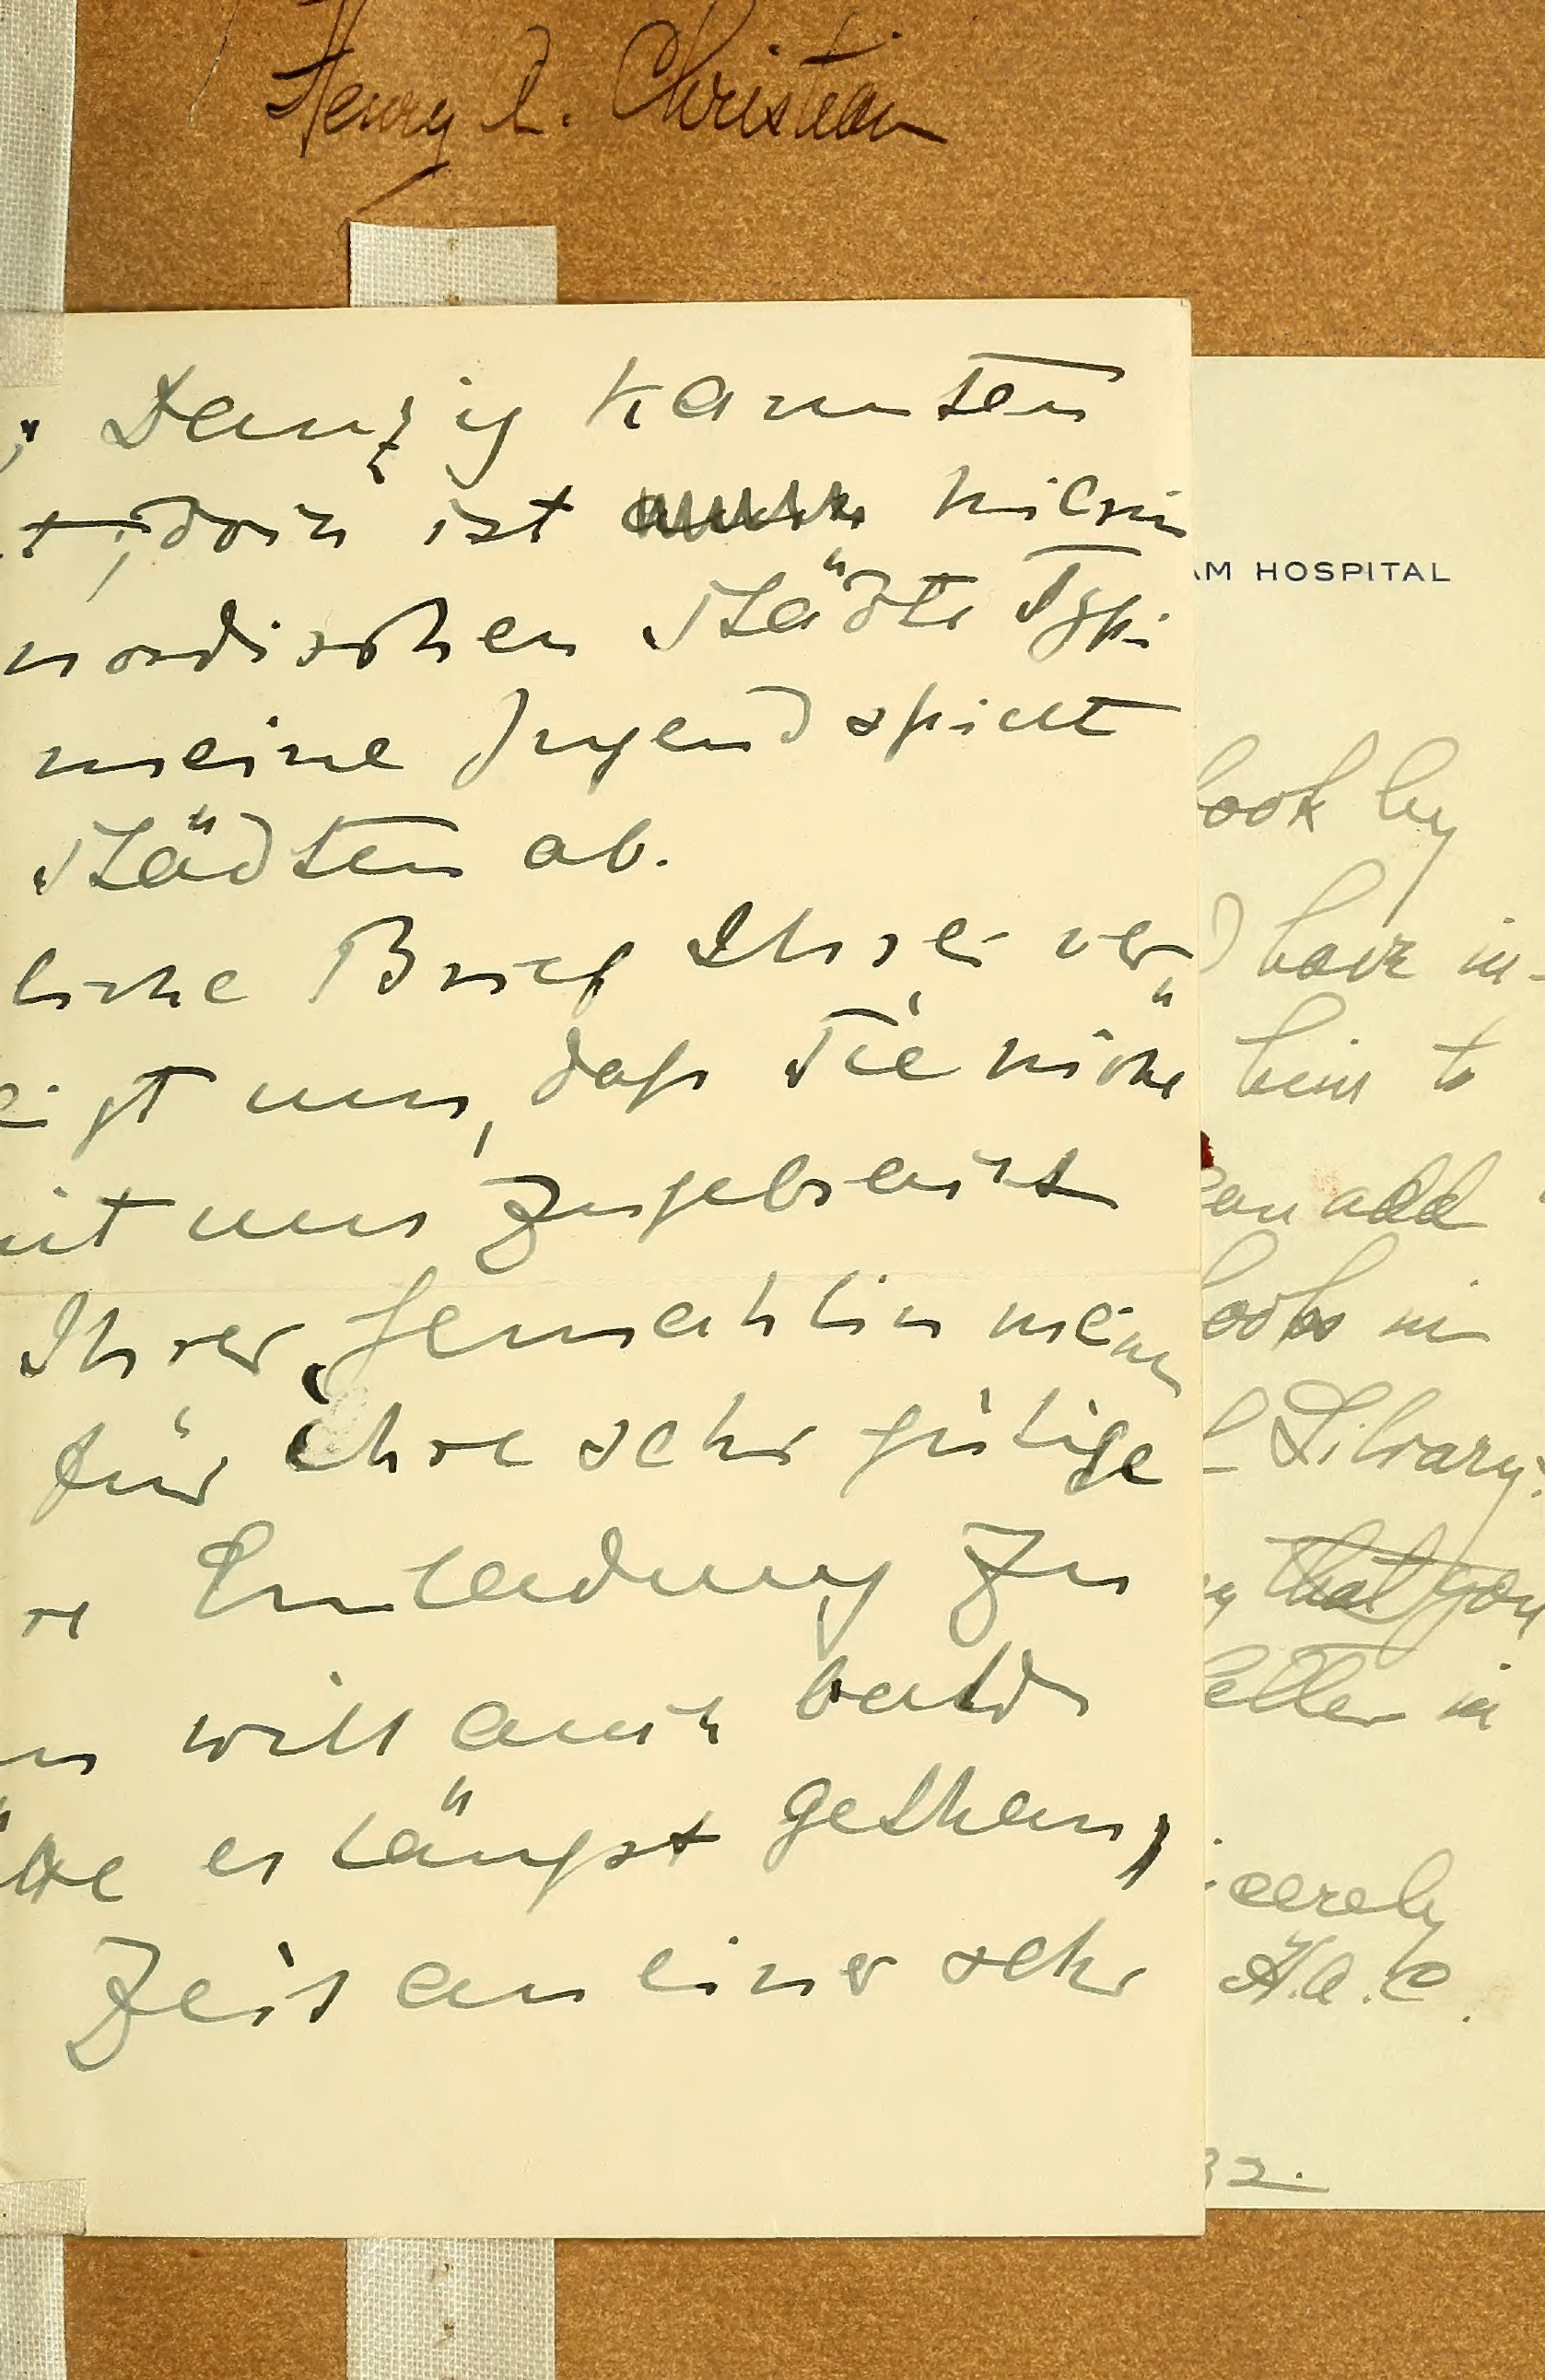 Henry A. Christian
Danzig kannten
t, doch ist
nordischen Städte Typ
meine Jugend spielt
Städten ab.
liche Brief Ihrer ver
igt uns, daß Sie nicht
mit uns zugebracht
Ihrer Gemahlin meinen
für ihre sehr gütige
re Einladung zu
will auch bald
es längst gethan,
Zeit an einer sehr
AM HOSPITAL
book by
I have in-
him to
can add
books in
Library.
that you
letter in
icerely
H.A.C.
32.